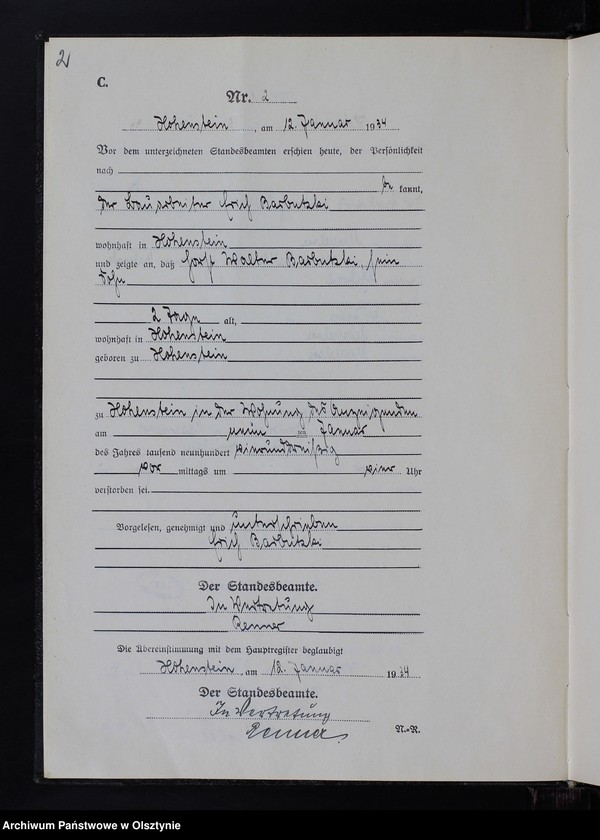 2
C.
Nr. 2
Hohenstein, am 12. Januar 1934
Vor dem unterzeichneten Standesbeamten erschien heute, der Persönlichkeit
nach
be kannt,
der Bauarbeiter Erich Barbutzki
wohnhaft in Hohenstein
und zeigte an, daß Horst Walter Barbutzki, sein
Sohn
2 Tage alt,
wohnhaft in Hohenstein
geboren zu Hohenstein
zu Hohenstein in der Wohnung des Anzeigenden
am neun ten Januar
des Jahres tausend neunhundert vierunddreißig
vor mittags um vier Uhr
verstorben sei.
Vorgelesen, genehmigt und unterschrieben
Erich Barbutzki
Der Standesbeamte.
In Vertretung
Renner
Die Übereinstimmung mit dem Hauptregister beglaubigt
Hohenstein, am 12. Januar 1934
Der Standesbeamte.
In Vertretung
Renner
N.=R.
Archiwum Państwowe w Olsztynie